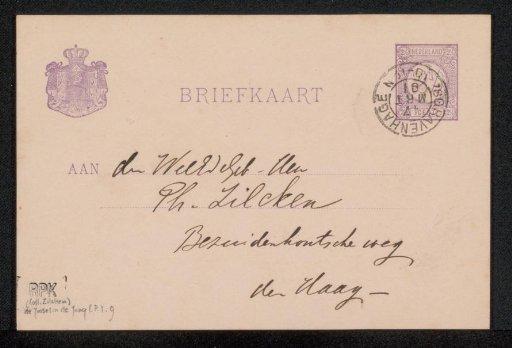 NEDERLAND
BRIEFKAART
'SGRAVENHAGE
AAN den WelEdGeb. Heer
Ph. Zilcken
Bezuidenhoutsche weg
den Haag —
RPK
(coll. Zilcken)
de Josselin de Jong (P.). 9